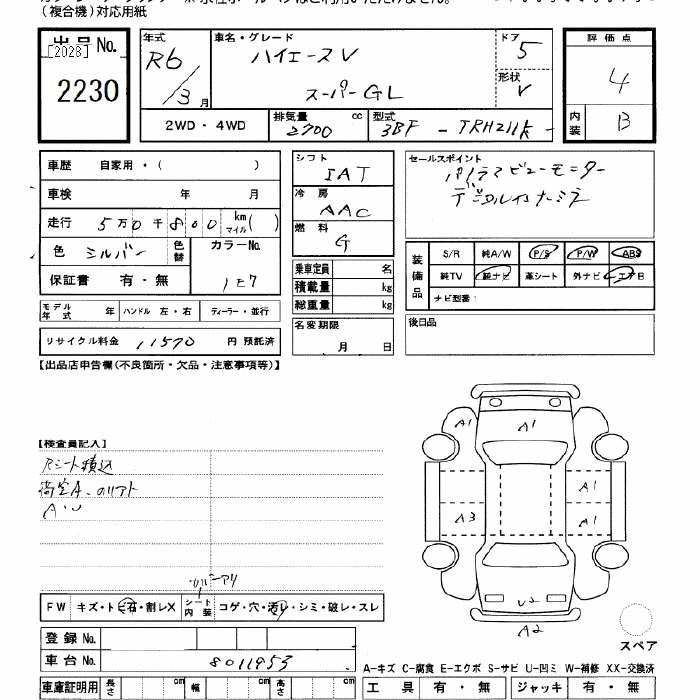 (複合機)対応用紙
出品No.
[2028]
2230
年式
R6/3月
車名・グレード
ハイエースV
スーパーGL
ドア
5
形状
V
2WD・4WD
排気量 2700 cc
型式 3BF - TRH211K -
評価点
4
内装 B
車歴 自家用・( )
車検 年 月
走行 5万0千800 km マイル( )
色 シルバー
色替
カラーNo.
1E7
保証書 有・無
モデル年式 年
ハンドル 左・右
ディーラー・並行
リサイクル料金 11570 円 預託済
シフト
IAT
冷房
AAC
燃料
G
乗車定員 名
積載量 kg
総重量 kg
名変期限
月 日
セールスポイント
パノラマビューモニター
デジタルインナーミラー
装備品
S/R 純A/W P/S P/W ABS
純TV 純ナビ 革シート 外ナビ エアB
ナビ型番:
後日品
【出品店申告欄(不良箇所・欠品・注意事項等)】
【検査員記入】
Rシート積込
荷室A、
A・U
FW キズ・トビ石・割レX
シート内装 コゲ・穴・汚レ・シミ・破レ・スレ
登録No.
車台No. 8011953
車庫証明用 長さ cm 幅 cm 高さ cm
A1
A1
A1
A3
A1
U2
A2
スペア
A−キズ C−腐食 E−エクボ S−サビ U−凹ミ W−補修 XX−交換済
工具 有・無 ジャッキ 有・無